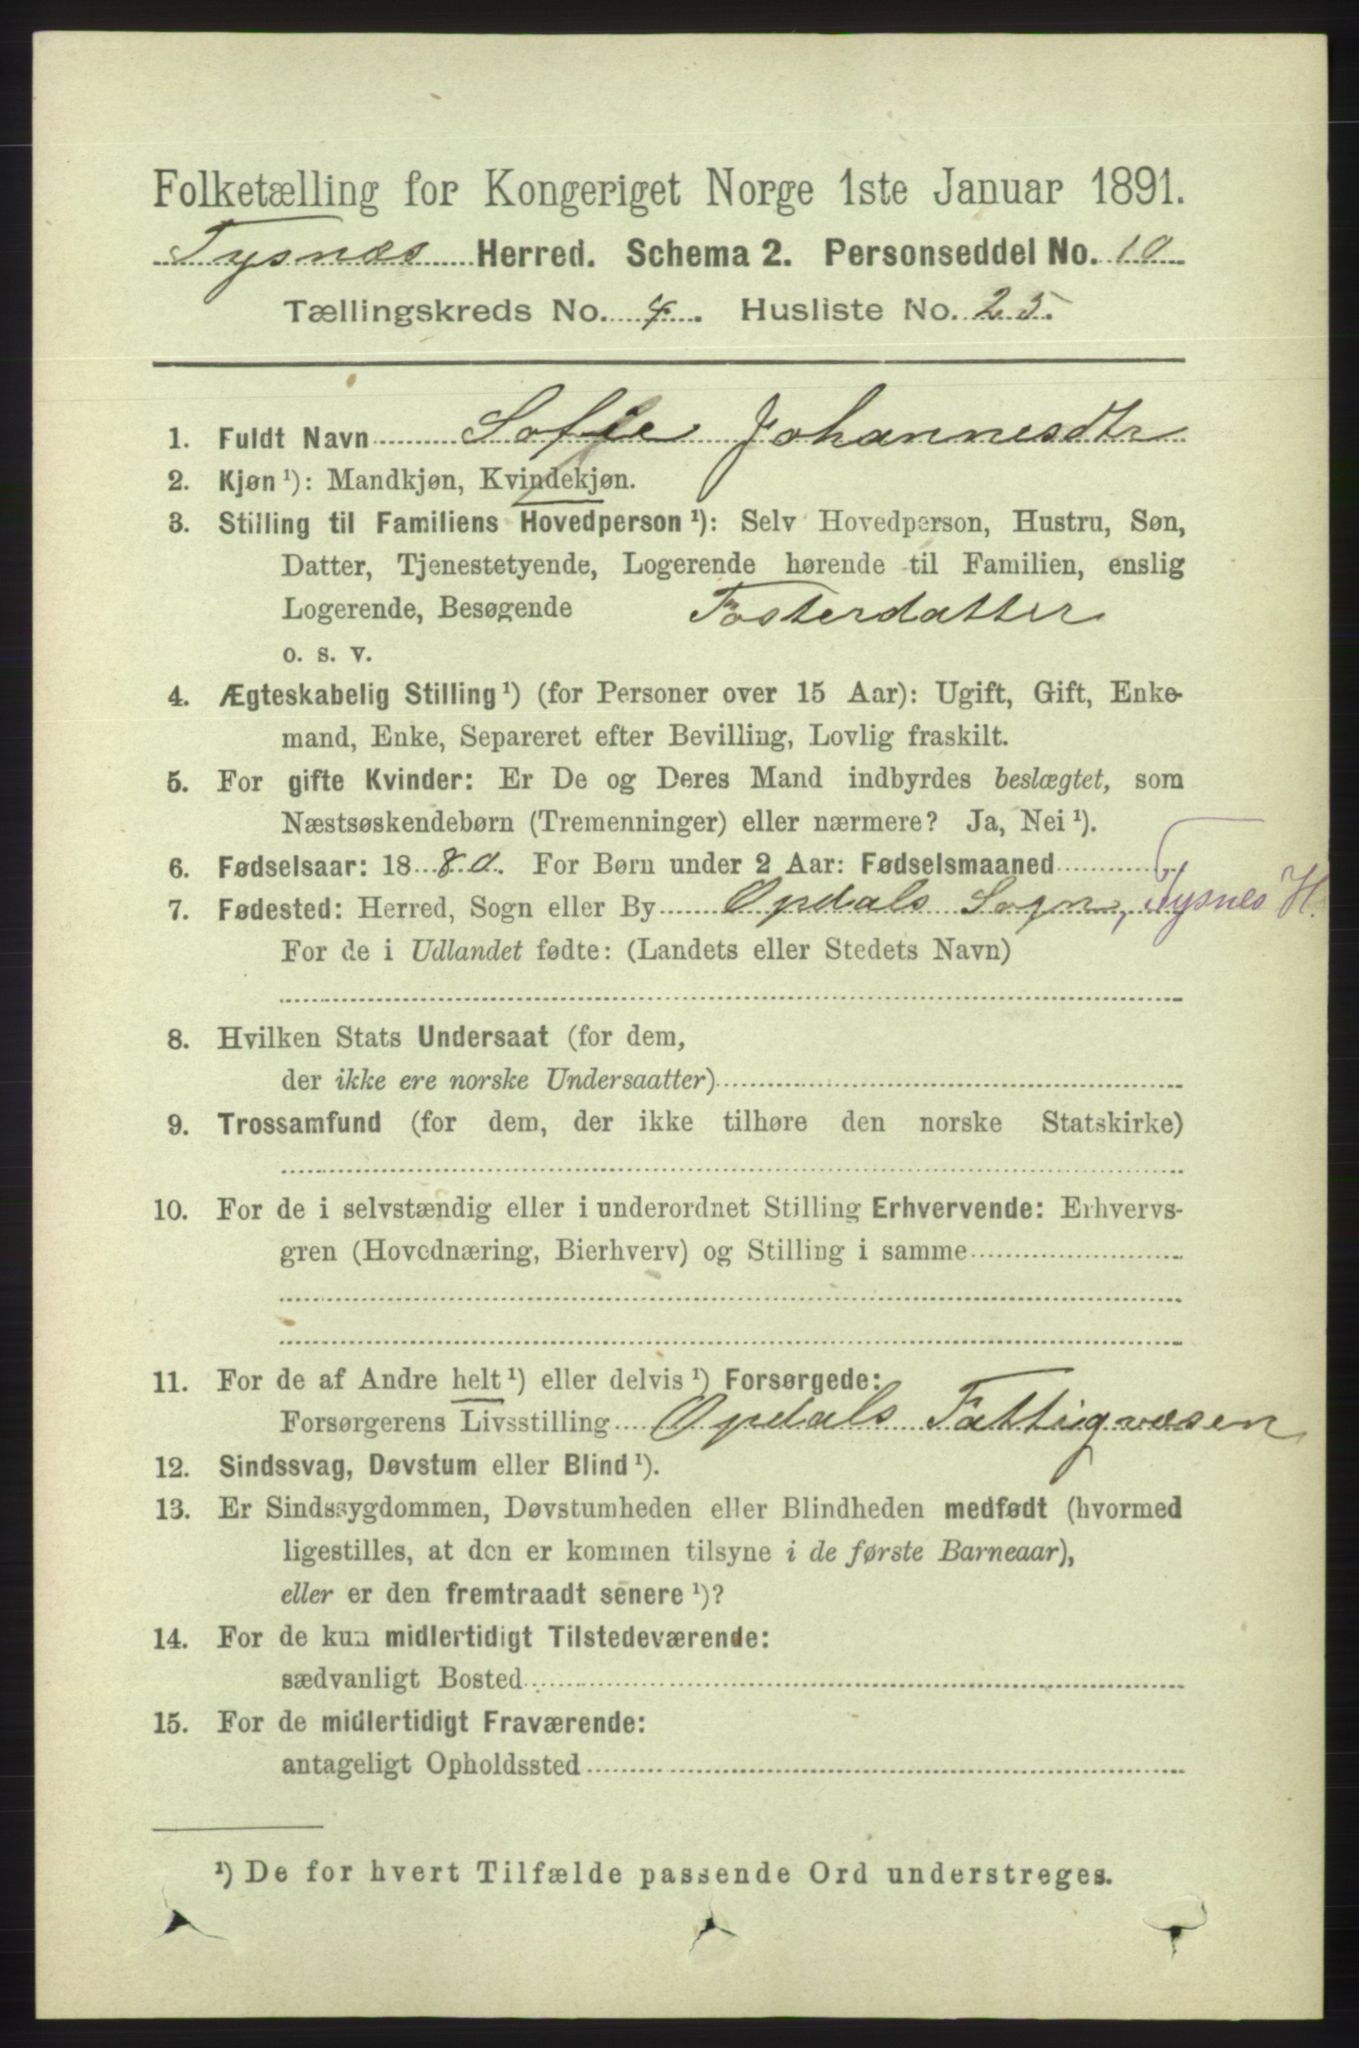 Folketælling for Kongeriget Norge 1ste Januar 1891.
Tysnæs Herred. Schema 2. Personseddel No. 10
Tællingskreds No. 4. Husliste No. 25.
1. Fuldt Navn Sofie Johannesdtr
2. Kjøn ¹): Mandkjøn, Kvindekjøn.
3. Stilling til Familiens Hovedperson ¹): Selv Hovedperson, Hustru, Søn,
Datter, Tjenestetyende, Logerende hørende til Familien, enslig
Logerende, Besøgende Fosterdatter
o. s. v.
4. Ægteskabelig Stilling ¹) (for Personer over 15 Aar): Ugift, Gift, Enke-
mand, Enke, Separeret efter Bevilling, Lovlig fraskilt.
5. For gifte Kvinder: Er De og Deres Mand indbyrdes beslægtet, som
Næstsøskendebørn (Tremenninger) eller nærmere? Ja, Nei ¹).
6. Fødselsaar: 1880. For Børn under 2 Aar: Fødselsmaaned
7. Fødested: Herred, Sogn eller By Opdals Sogn, Tysnes H.
For de i Udlandet fødte: (Landets eller Stedets Navn)
8. Hvilken Stats Undersaat (for dem,
der ikke ere norske Undersaatter)
9. Trossamfund (for dem, der ikke tilhøre den norske Statskirke)
10. For de i selvstændig eller i underordnet Stilling Erhvervende: Erhvervs-
gren (Hovednæring, Bierhverv) og Stilling i samme
11. For de af Andre helt ¹) eller delvis ¹) Forsørgede:
Forsørgerens Livsstilling Opdals Fattigvæsen
12. Sindssvag, Døvstum eller Blind ¹).
13. Er Sindssygdommen, Døvstumheden eller Blindheden medfødt (hvormed
ligestilles, at den er kommen tilsyne i de første Barneaar),
eller er den fremtraadt senere ¹)?
14. For de kun midlertidigt Tilstedeværende:
sædvanligt Bosted
15. For de midlertidigt Fraværende:
antageligt Opholdssted
¹) De for hvert Tilfælde passende Ord understreges.